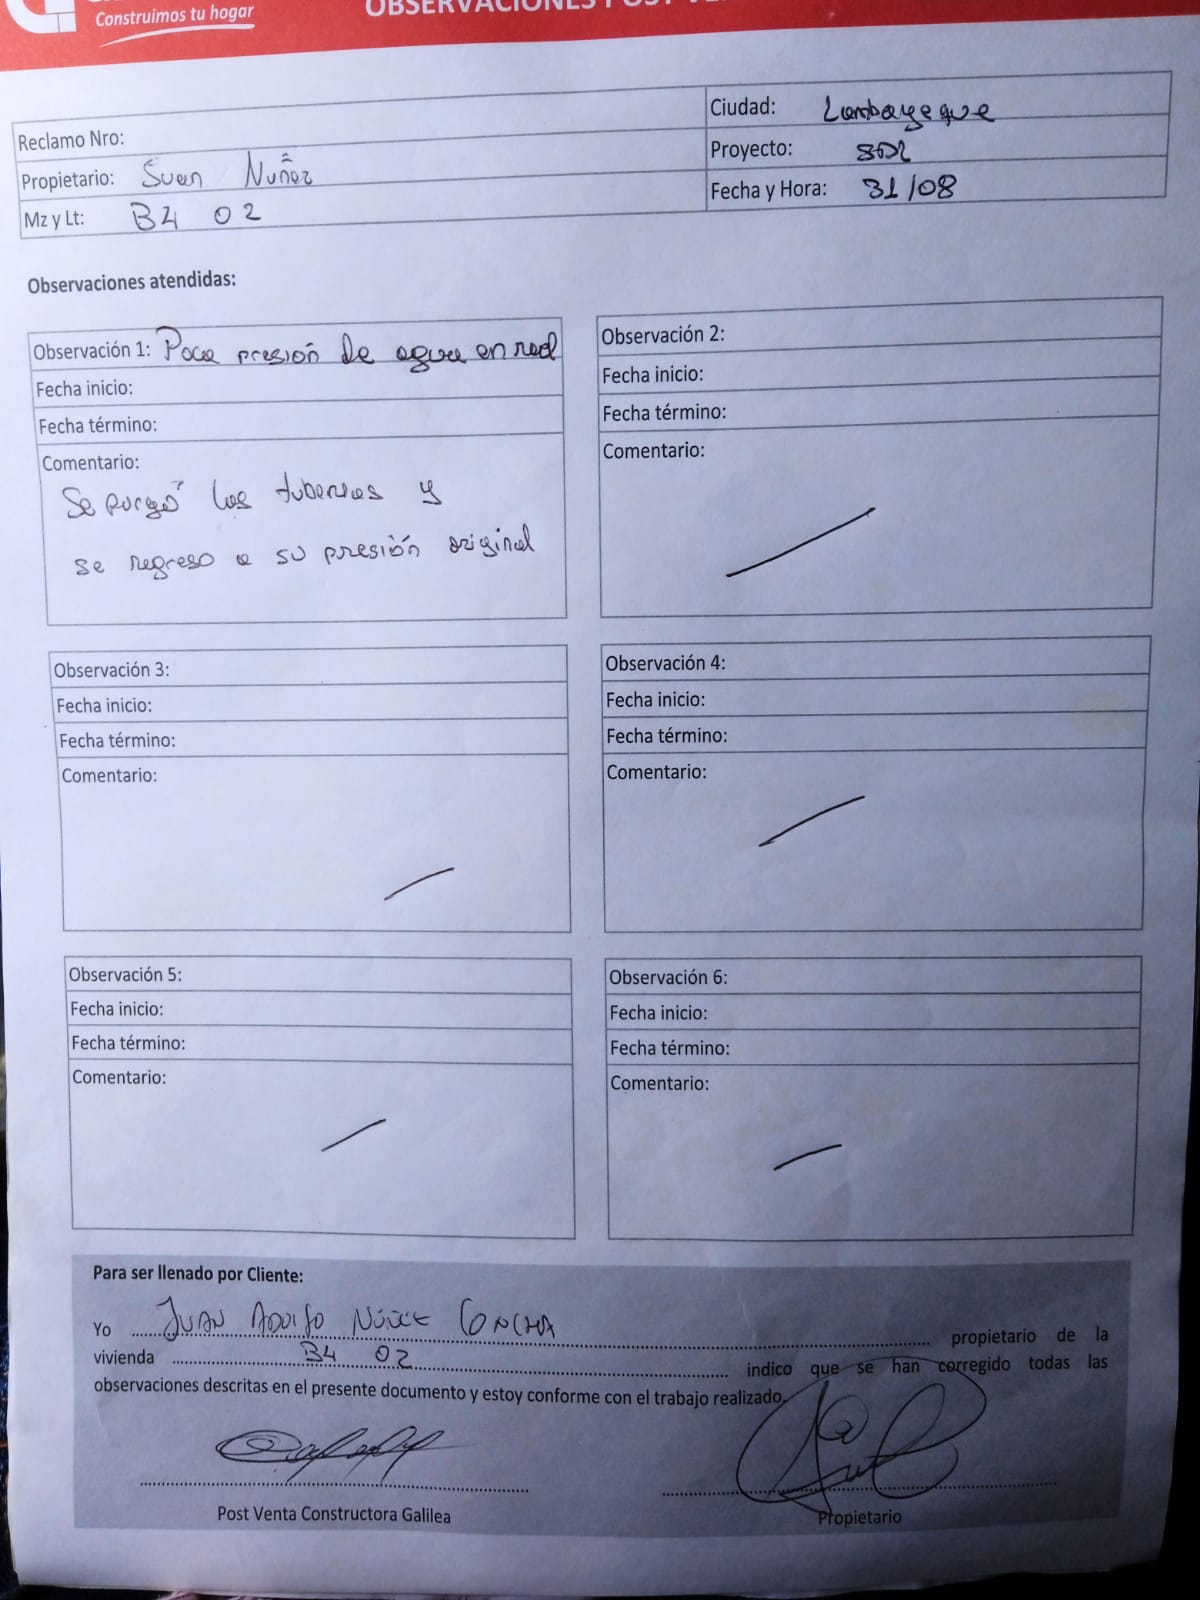 Construimos tu hogar
OBSERVACIONES POST VE
Reclamo Nro:
Propietario: Suan Nuñez
Mz y Lt: B4 02
Ciudad: Lambayeque
Proyecto: SDL
Fecha y Hora: 31/08
Observaciones atendidas:
Observación 1: Poca presión de agua en red
Fecha inicio:
Fecha término:
Comentario:
Se purgó las tuberias y
se regreso a su presión original
Observación 2:
Fecha inicio:
Fecha término:
Comentario:
Observación 3:
Fecha inicio:
Fecha término:
Comentario:
Observación 4:
Fecha inicio:
Fecha término:
Comentario:
Observación 5:
Fecha inicio:
Fecha término:
Comentario:
Observación 6:
Fecha inicio:
Fecha término:
Comentario:
Para ser llenado por Cliente:
Yo JUAN ADOLFO NÚÑEZ CONCHA propietario de la
vivienda B4 02 indico que se han corregido todas las
observaciones descritas en el presente documento y estoy conforme con el trabajo realizado.
Post Venta Constructora Galilea
Propietario